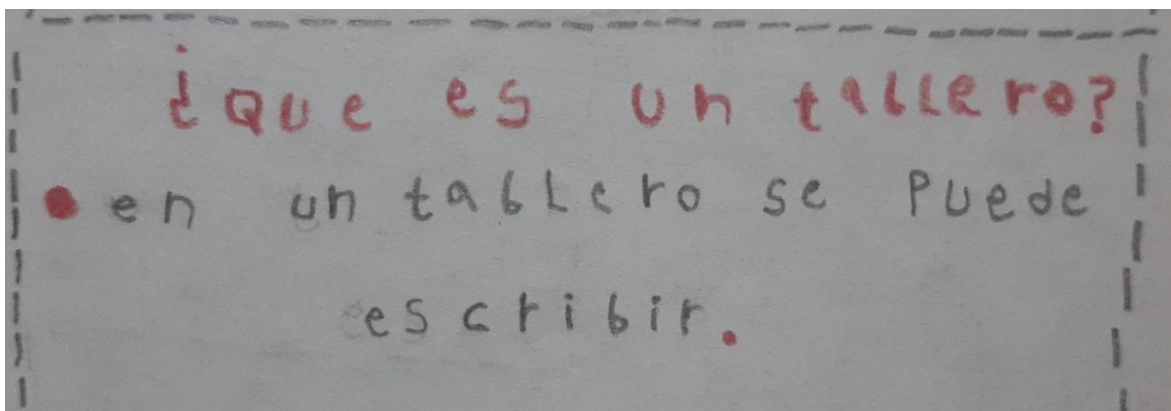 ¿que es un tallero?
en un tablero se puede
escribir.